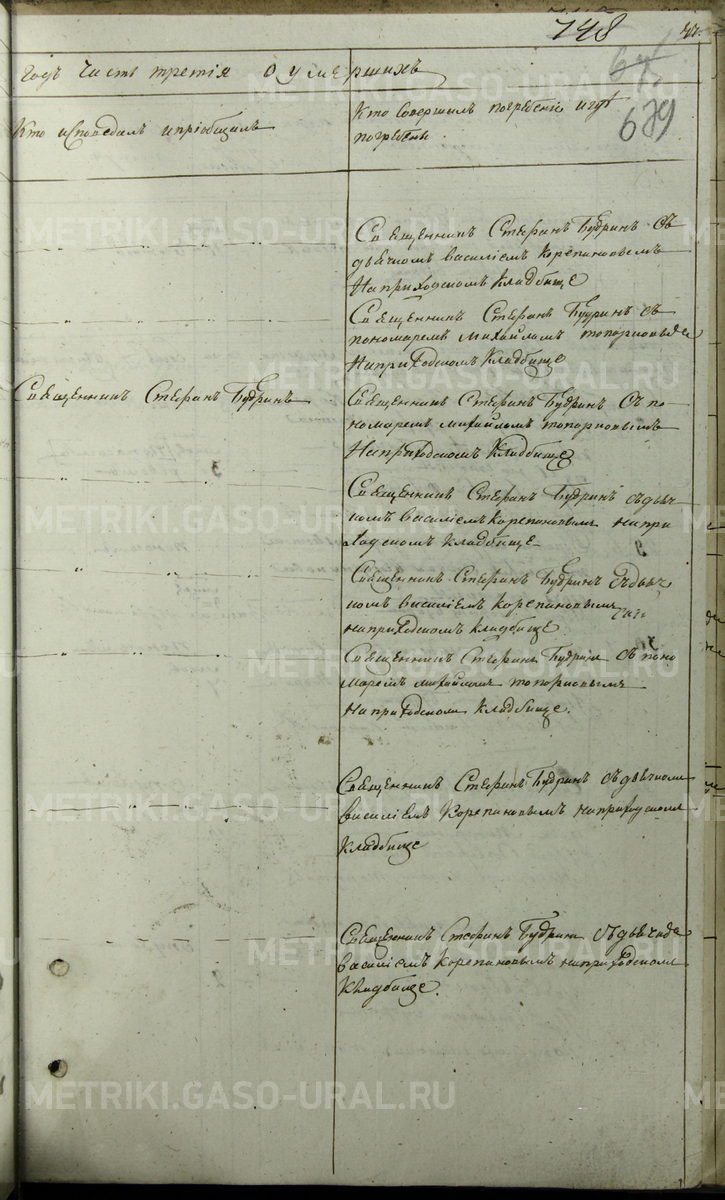 748
679
годъ часть третія о умершихъ
Кто исповедалъ и пріобщилъ
Кто совершилъ погребеніе и гдѣ
погребены
Священникъ Стефанъ Будринъ съ
дьячкомъ василіемъ Корепановымъ
На приходскомъ Кладбище
Священникъ Стефанъ Будринъ съ
пономаремъ михайломъ топорковымъ
На приходскомъ Кладбище
Священникъ Стефанъ Будринъ
Священникъ Стефанъ Будринъ съ по
номаремъ михайломъ топорковымъ
На приходскомъ Кладбище
Священникъ Стефанъ Будринъ съ дьяч
комъ василіемъ Корепановымъ на при
ходскомъ кладбище
Священникъ Стефанъ Будринъ съ дьяч
комъ василіемъ Корепановымъ
на приходскомъ кладбище
Священникъ Стефанъ Будринъ съ поно
маремъ михайломъ топорковымъ
На приходскомъ кладбище.
Священникъ Стефанъ Будринъ съ дьячкомъ
василіемъ Корепановымъ на приходскомъ
кладбище
Священникъ Стефанъ Будринъ
василіемъ Корепановымъ на приходскомъ
Кладбище.
METRIKI.GASO-URAL.RU